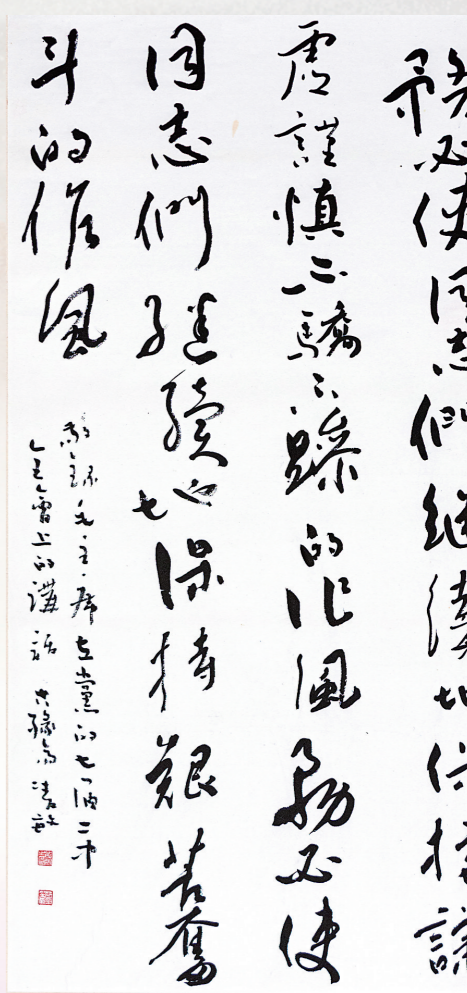 務必使同志們继續地保持謙
虚謹慎不驕不躁的作風務必使
同志們继續地保持艱苦奮
斗的作風
敬録毛主席在黨的七届二中
全會上的講話